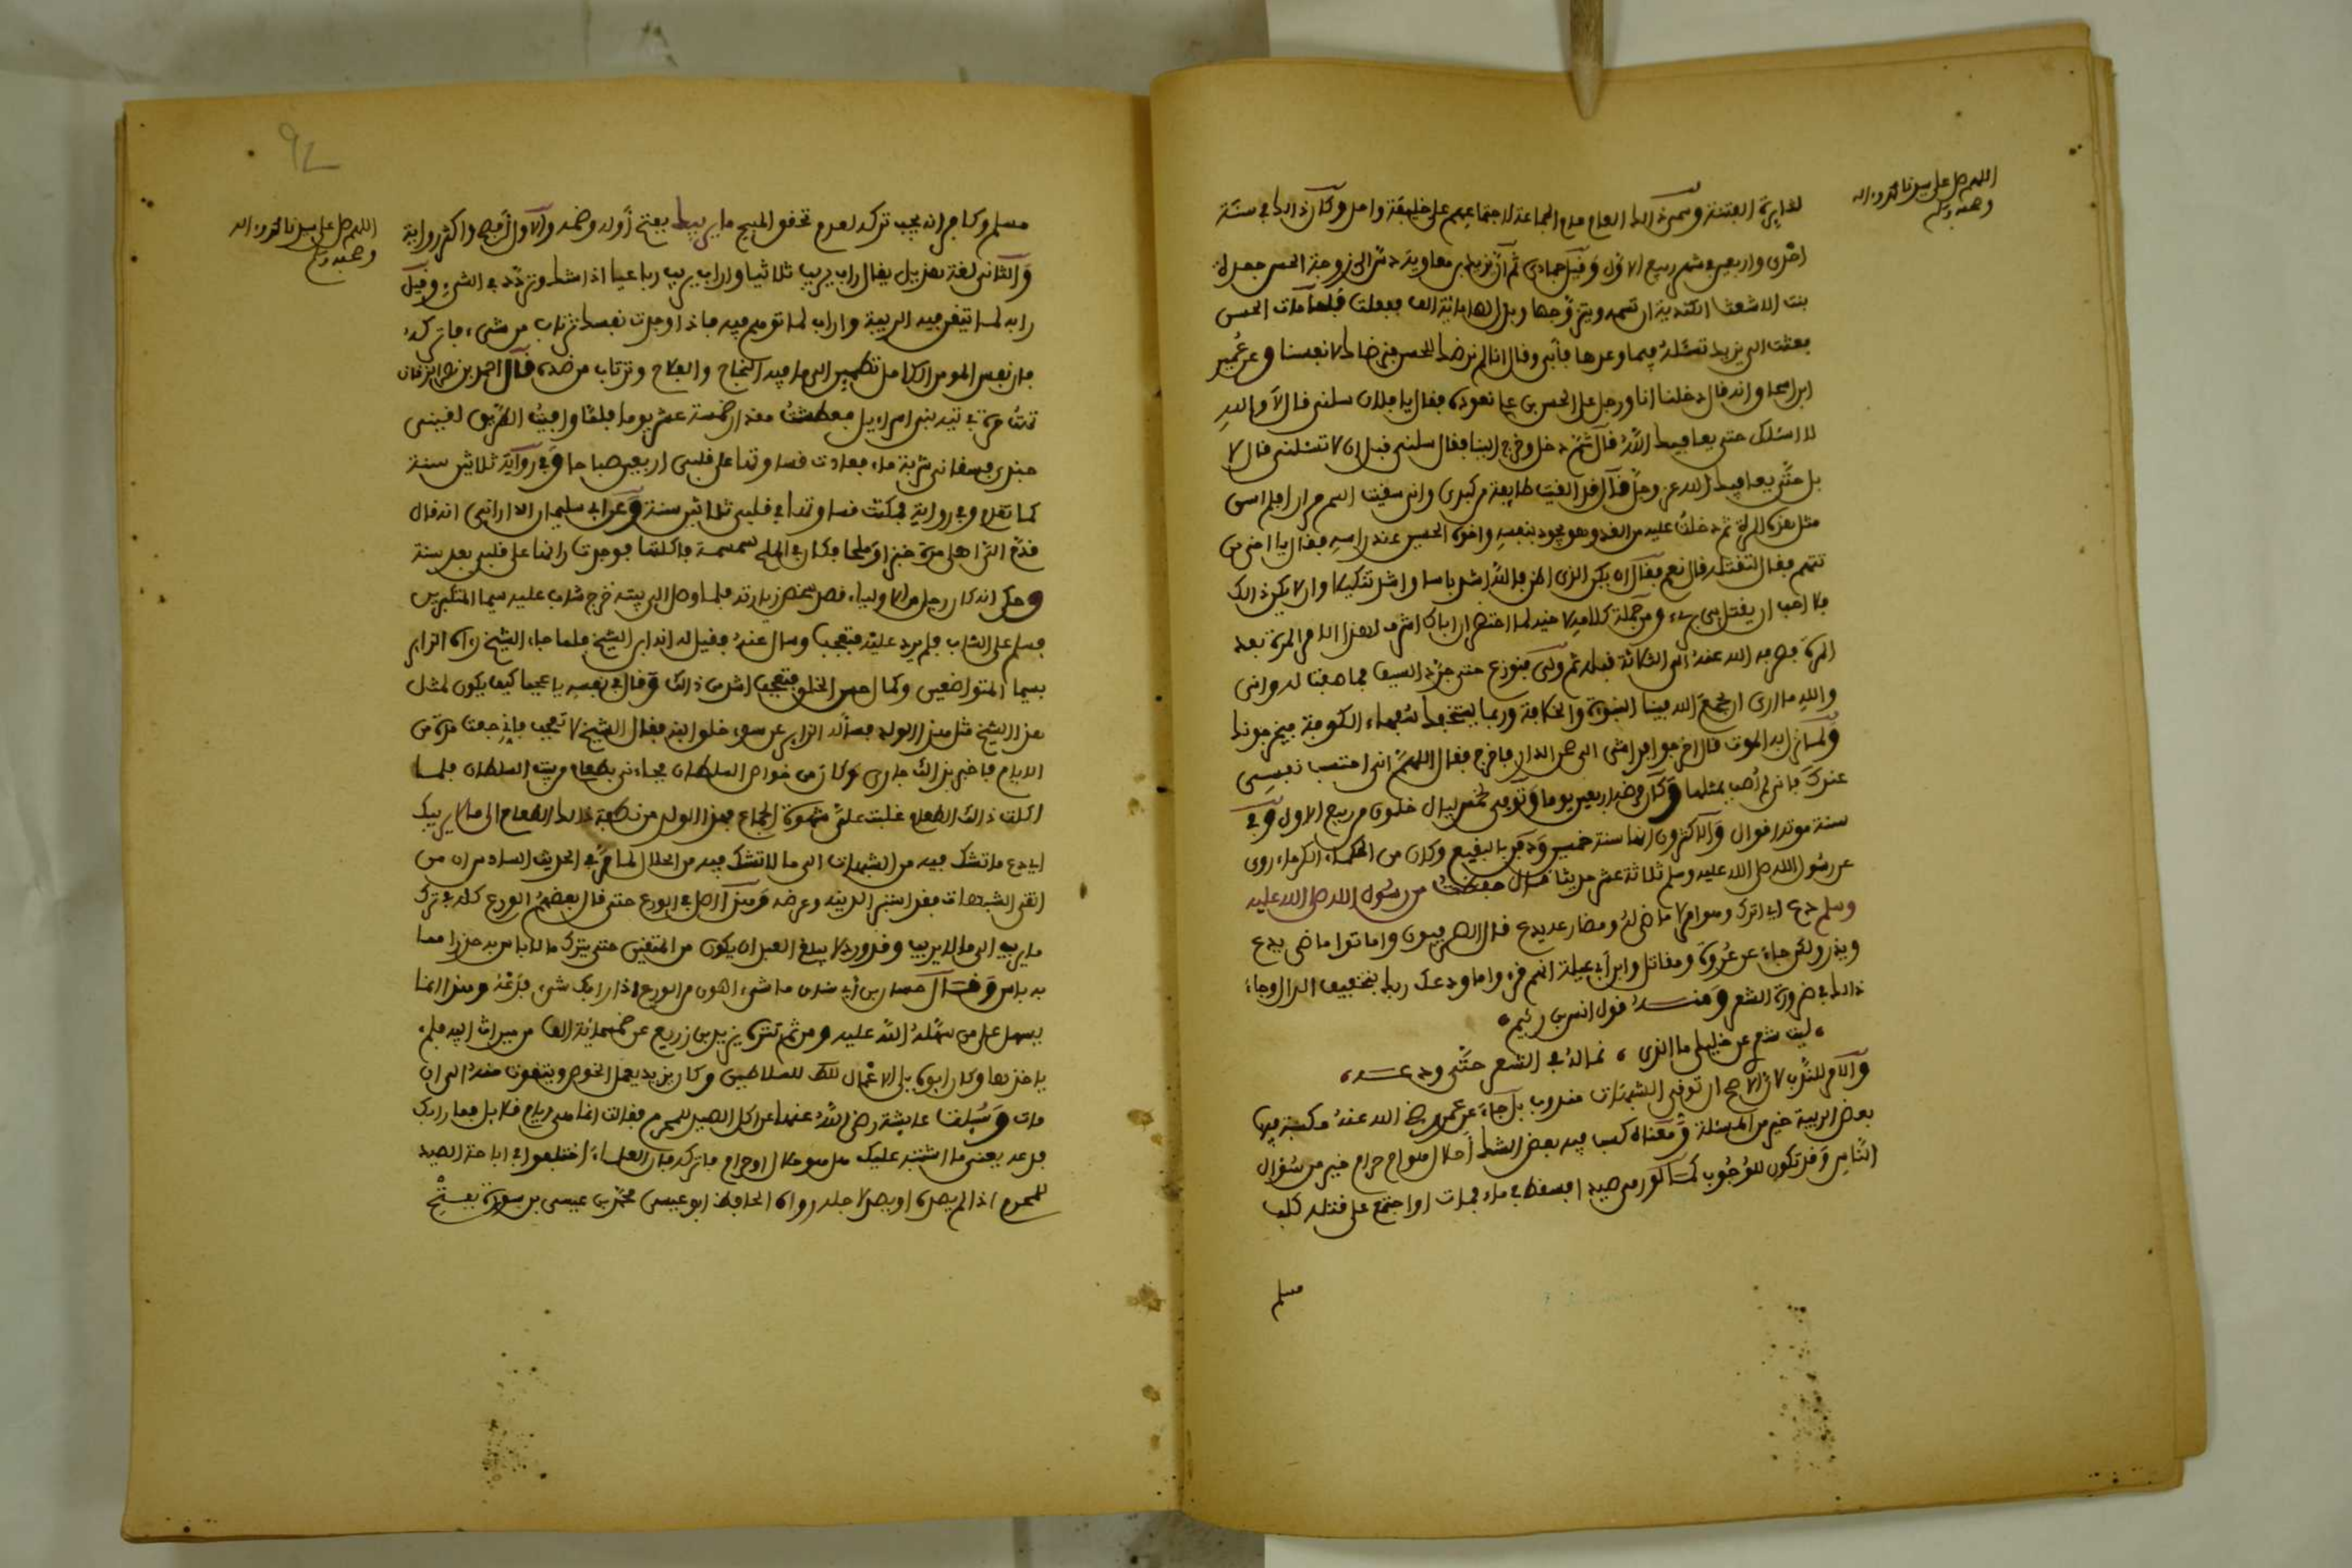 اللهم صل على سيدنا محمد وءاله
وصحبه وسلم
لدايرة الفتنة وسمى ذالك العام عام الجماعة لاجتماعهم على خليفة واحد وكان ذالك في سنة
احدى واربعين في شهر ربيع الاول وقيل جمادى ثم ان يزيد بن معاوية دس الى زوجة الحسن جعدة
بنت الاشعث الكندية ان تسمه ويتزوجها وبذل لها مائة الف ففعلت فلما مات الحسن
بعثت الى يزيد تسئله فيما وعدها فأبى وقال انا لم نرضك للحسن فنرضاك لانفسنا وعن عمير
ابن اسحاق انه قال دخلنا انا ورجل على الحسن بن علي نعوده فقال يا فلان سلني قال لا والله
لا اسئلك حتى يعافيك الله قال ثم دخل وخرج الينا فقال سلني قبل ان لا تسئلني قال لا
بل حتى يعافيك الله عز وجل قال قد القيت طايفة من كبدي واني سقيت السم مرارا فلم اسق
مثل هذه المرة ثم دخلت عليه من الغد وهو يجود بنفسه واخوه الحسين عند راسه فقال يا اخي من
تتهم فقال لتقتله قال نعم فقال ان يكن الذي اظن فالله اشد باسا واشد تنكيلا وان لا يكن ذالك
فلا احب ان يقتل بي بريء ومن جملة كلامه لاخيه لما احتضر ان اباك استشرف لهذا الامر المرة بعد
المرة فصرفه الله عنه الى الثلاثة قبله ثم ولي فنوزع حتى جرد السيف فما صفت له واني
والله ما ارى ان يجمع الله فينا النبوة والخلافة وربما يستخفك سفهاء الكوفة فيخرجونك
ولما نزل به الموت قال اخرجوا فراشي الى صحن الدار فاخرج فقال اللهم اني احتسب نفسي
عندك فاني لم أصب بمثلها وكان مرضه اربعين يوما وتوفي لخمس ليال خلون من ربيع الاول وفي
سنة موته اقوال والاكثرون انها سنة خمسين ودفن بالبقيع وكان من الحكماء الكرماء روى
عن رسول الله صلى الله عليه وسلم ثلاثة عشر حديثا قال حفظت من رسول الله صلى الله عليه
وسلم دع اي اترك وهو امر لا ماضي له ومضارعه يدع قال الصرفيون واماتوا ماضي يدع
ويذر ولكن جاء عن عروة ومقاتل وابن أبي عبلة انهم قرءوا ما ودعك ربك بتخفيف الدال وجاء
ذالك في ضرورة الشعر ومنه قول انس بن زنيم
ليت شعري عن خليلي ما الذي ، غاله في الشعر حتى ودعه ،
والامر للندب لان الاصح ان توقي الشبهات مندوب بل جاء عن عمر رضي الله عنه مكسبة فيها
بعض الريبة خير من المسئلة ومعناه كسب فيه بعض الشك أحلال هو ام حرام خير من سؤال
الناس وقد تكون للوجوب كما لو رمى صيدا فسقط في ماء فمات او اجتمع على قتله كلب
مسلم
اللهم صل على سيدنا محمد وءاله
وصحبه وسلم
مسلم وكافر انه يجب تركه لعدم تحقق المبيح ما يريبك بفتح أوله وضمه والاول أفصح واكثر رواية
والثاني لغة هذيل يقال راب يريب ثلاثيا واراب يريب رباعيا اذا شك وتردد في الشيء وقيل
رابه لما تيقن فيه الريبة واراب لما توهم فيه فاذا وجدت نفسك ترتاب من شيء فاتركه
فان نفس المومن الكامل تطمئن الى ما فيه النجاح والفلاح وترتاب من ضده قال احمد بن نصر الزقاق
تهت مرة في تيه بني اسراءيل فعطشت مقدار خمسة عشر يوما فلما وافيت الطريق لقيني
جندي فسقاني شربة ماء فعادت قساوتها على قلبي اربعين صباحا وفي رواية ثلاثين سنة
كما تقدم وفي رواية فمكثت قساوتها في قلبي ثلاثين سنة وعن ابي سليمان الداراني انه قال
قدم الي اهلي مرة خبزا وملحا فكان في الملح سمسمة فاكلتها فوجدت رانها على قلبي بعد سنة
وحكي انه كان رجل من الاولياء قصد شخص زيارته فلما وصل الى بيته خرج شاب عليه سيما المتكبرين
فسلم على الشاب فلم يرد عليه فتعجب وسال عنه فقيل له انه ابن الشيخ فلما جاء الشيخ رءاه الزاير
بسيما المتواضعين وكمال حسن الخلق فتعجب اشد من ذالك وقال في نفسه يا عجبا كيف يكون لمثل
هذا الشيخ مثل هذا الولد فسأله الزاير عن سوء خلق ابنه فقال الشيخ لا تعجب فاني جعت مرة من
الايام فاخبر بذالك جاري وكان من خواص السلطان فجاءني بطعام من بيت السلطان فلما
اكلت ذالك الطعام غلبت علي شهوة الجماع فهذا الولد من نطفة ذالك الطعام الى ما لا يريبك
اي دع ما تشك فيه من الشبهات الى ما لا تشك فيه من الحلال لما مر في الحديث السادس ان من
اتقى الشبهات فقد استبرأ لدينه وعرضه وهذا اصل في الورع حتى قال بعضهم الورع كله في ترك
ما يريب الى ما لا يريب وقد ورد لا يبلغ العبد ان يكون من المتقين حتى يترك ما لا باس به حذرا مما
به باس وقال حسان بن أبي سنان ما شيء اهون من الورع اذا رابك شيء فدعه وهذا انما
يسهل على من سهله الله عليه ومن ثم تنزه يزيد بن زريع عن خمسمائة الف من ميراث ابيه فلم
ياخذها وكان ابوه يلي الاعمال للسلاطين وكان يزيد يعمل الخوص ويتقوت منه الى ان
مات وسئلت عايشة رضي الله عنها عن اكل الصيد للمحرم فقالت انما هي ايام قلايل فما رابك
فدعه يعني ما اشتبه عليك هل هو حلال او حرام فاتركه فان العلماء اختلفوا في اباحة الصيد
للمحرم اذا لم يصده او يصد لاجله رواه الحافظ ابو عيسى محمد بن عيسى بن سورة بفتح